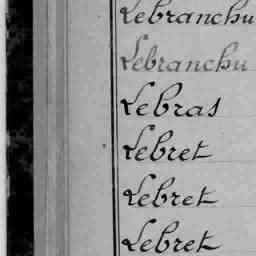 Lebranchu
Lebranchu
Lebras
Lebret
Lebret
Lebret